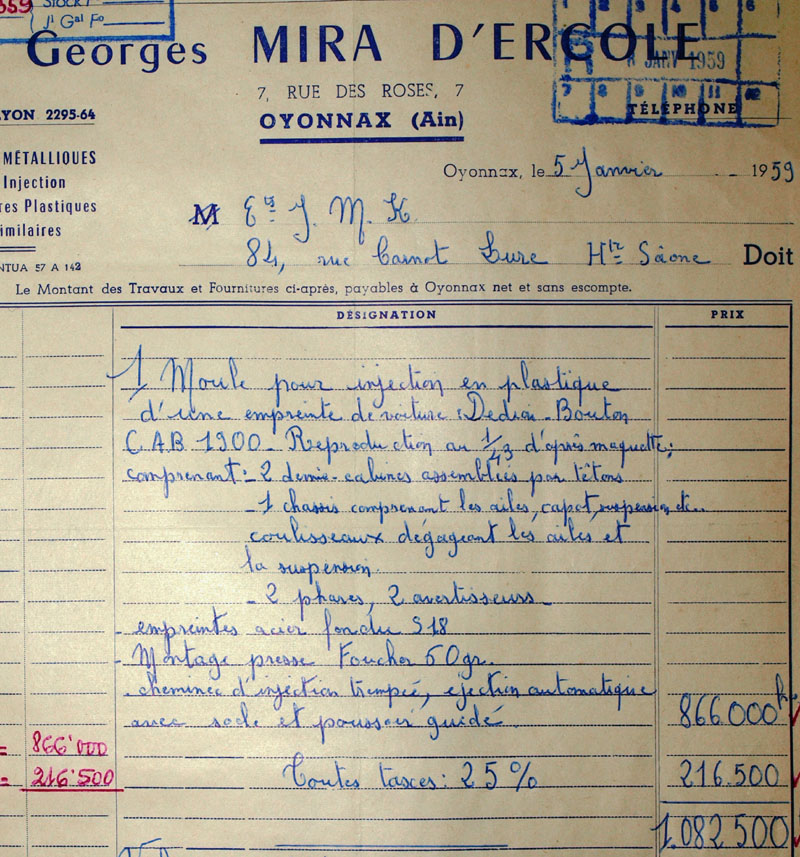 559
STOCK
J<sup>l</sup> G<sup>al</sup> F<sup>o</sup>
Georges MIRA D'ERCOLE
7, RUE DES ROSES, 7
OYONNAX (Ain)
6
JANV 1959
7 8 9 10 11 12
TÉLÉPHONE
YON 2295-64
MÉTALLIQUES
Injection
res Plastiques
imilaires
NTUA 57 A 142
Oyonnax, le 5 Janvier 1959
M Ets J. M. K.
84, rue Carnot Lure Hte Saône Doit
Le Montant des Travaux et Fournitures ci-après, payables à Oyonnax net et sans escompte.
DÉSIGNATION PRIX
1 Moule pour injection en plastique
d'une empreinte de voiture : Dedion-Bouton
CAB 1900 - Reproduction au 1/43 d'après maquette;
comprenant : - 2 demie-cabines assemblées par têtons
- 1 chassis comprenant les ailes, capot, suspension, etc..
coulisseaux dégageant les ailes et
la suspension.
- 2 phares, 2 avertisseurs
- empreintes acier fondu S18
- Montage presse Foucher 60gr.
- cheminée d'injection trempée, ejection automatique
avec socle et poussoir guidé 866.000
= 866'000
= 216'500
Toutes taxes : 25% 216.500
1.082.500